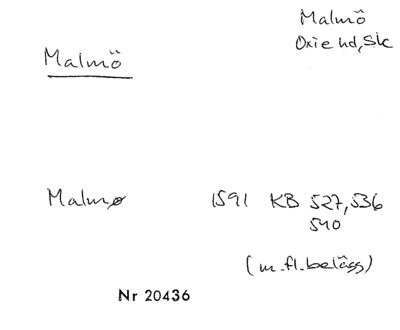 Malmö
Oxie hd, Sk
Malmö
Malmø 1591 KB 527, 536
540
(m. fl. belägg)
Nr 20436